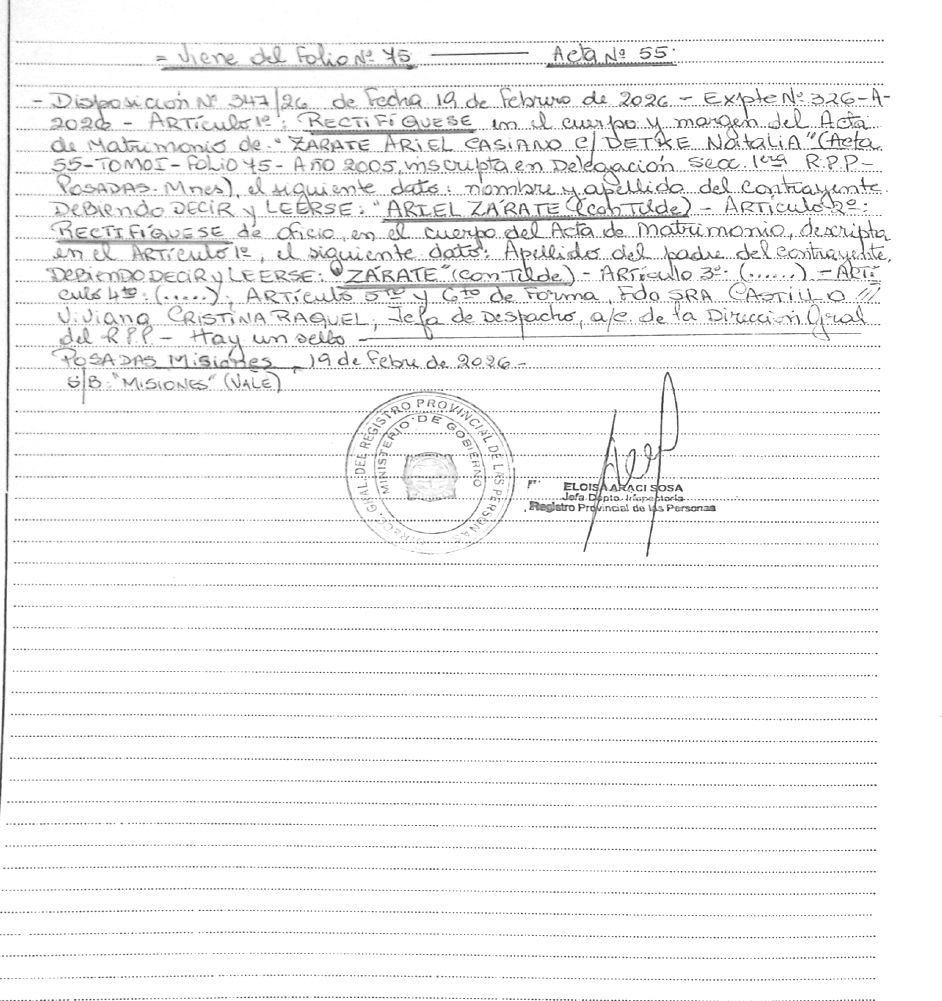 = Viene del Folio Nº 75 ——— Acta Nº 55.
- Disposición Nº 347/26 de Fecha 19 de Febrero de 2026 - Expte Nº 326-A-
2026 - ARTículo 1º: RECTIFÍQUESE en el cuerpo y margen del Acta
de Matrimonio de "ZARATE ARIEL CASIANO c/ DETKE NATALIA" (Acta
55-TOMO I-Folio 75- AÑO 2005, inscripta en Delegación Secc. 1era R.P.P-
POSADAS-Mnes), el siguiente dato: nombre y apellido del contrayente
DEBIENDO DECIR y LEERSE: "ARIEL ZÁRATE (con Tilde) - ARTículo 2º:
RECTIFÍQUESE de oficio, en el cuerpo del Acta de Matrimonio, descripta
en el ARTículo 1º, el siguiente dato: Apellido del padre del contrayente,
DEBIENDO DECIR y LEERSE: "ZÁRATE" (con Tilde) - ARTículo 3º: (.....) - ARTÍ
culo 4to: (.....); ARTículo 5to y 6to de Forma, Fdo SRA CASTILLO ///
Viviana CRISTINA RAQUEL, Jefa de Despacho, a/c. de la Direccion Gral
del R.P.P - Hay un sello ———
POSADAS Misiones, 19 de Febre de 2026.-
S/B: "MISIONES" (VALE)
DIRECC. GRAL. DEL REGISTRO PROVINCIAL DE LAS PERSONAS
MINISTERIO DE GOBIERNO
ELOISA ARACI SOSA
Jefa Dpto. Inspectoria
Registro Provincial de las Personas